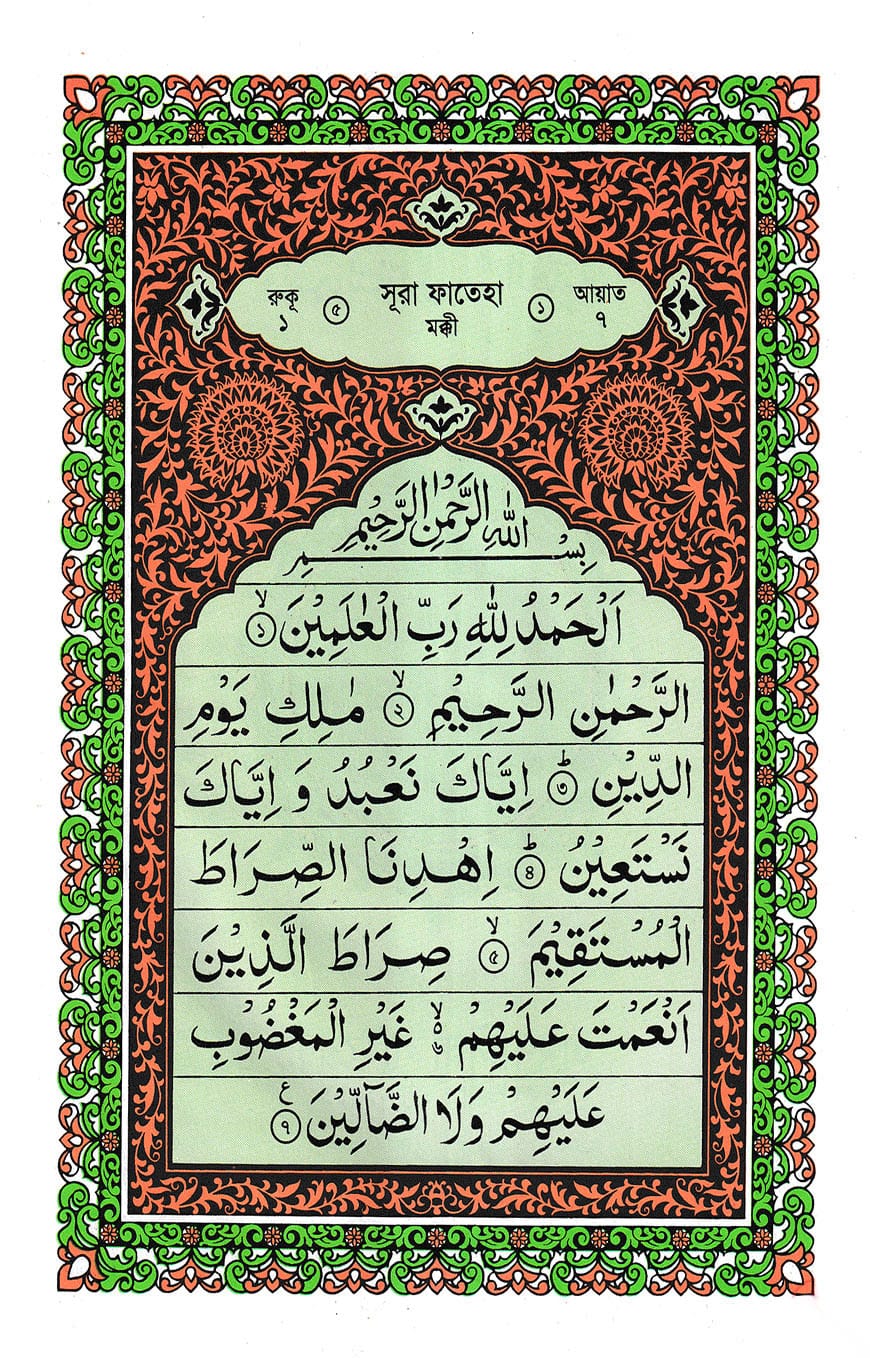 রুকূ ৫ সূরা ফাতেহা ১ আয়াত
১ মক্কী ৭
بِسْمِ اللّٰهِ الرَّحْمٰنِ الرَّحِيْمِ
اَلْحَمْدُ لِلّٰهِ رَبِّ الْعٰلَمِيْنَ ১ۙ
الرَّحْمٰنِ الرَّحِيْمِ ২ۙ مٰلِكِ يَوْمِ
الدِّيْنِ ৩ؕ اِيَّاكَ نَعْبُدُ وَ اِيَّاكَ
نَسْتَعِيْنُ ৪ؕ اِهْدِنَا الصِّرَاطَ
الْمُسْتَقِيْمَ ৫ۙ صِرَاطَ الَّذِيْنَ
اَنْعَمْتَ عَلَيْهِمْ ৬ۙ غَيْرِ الْمَغْضُوْبِ
عَلَيْهِمْ وَلَا الضَّآلِّيْنَ ৭ع